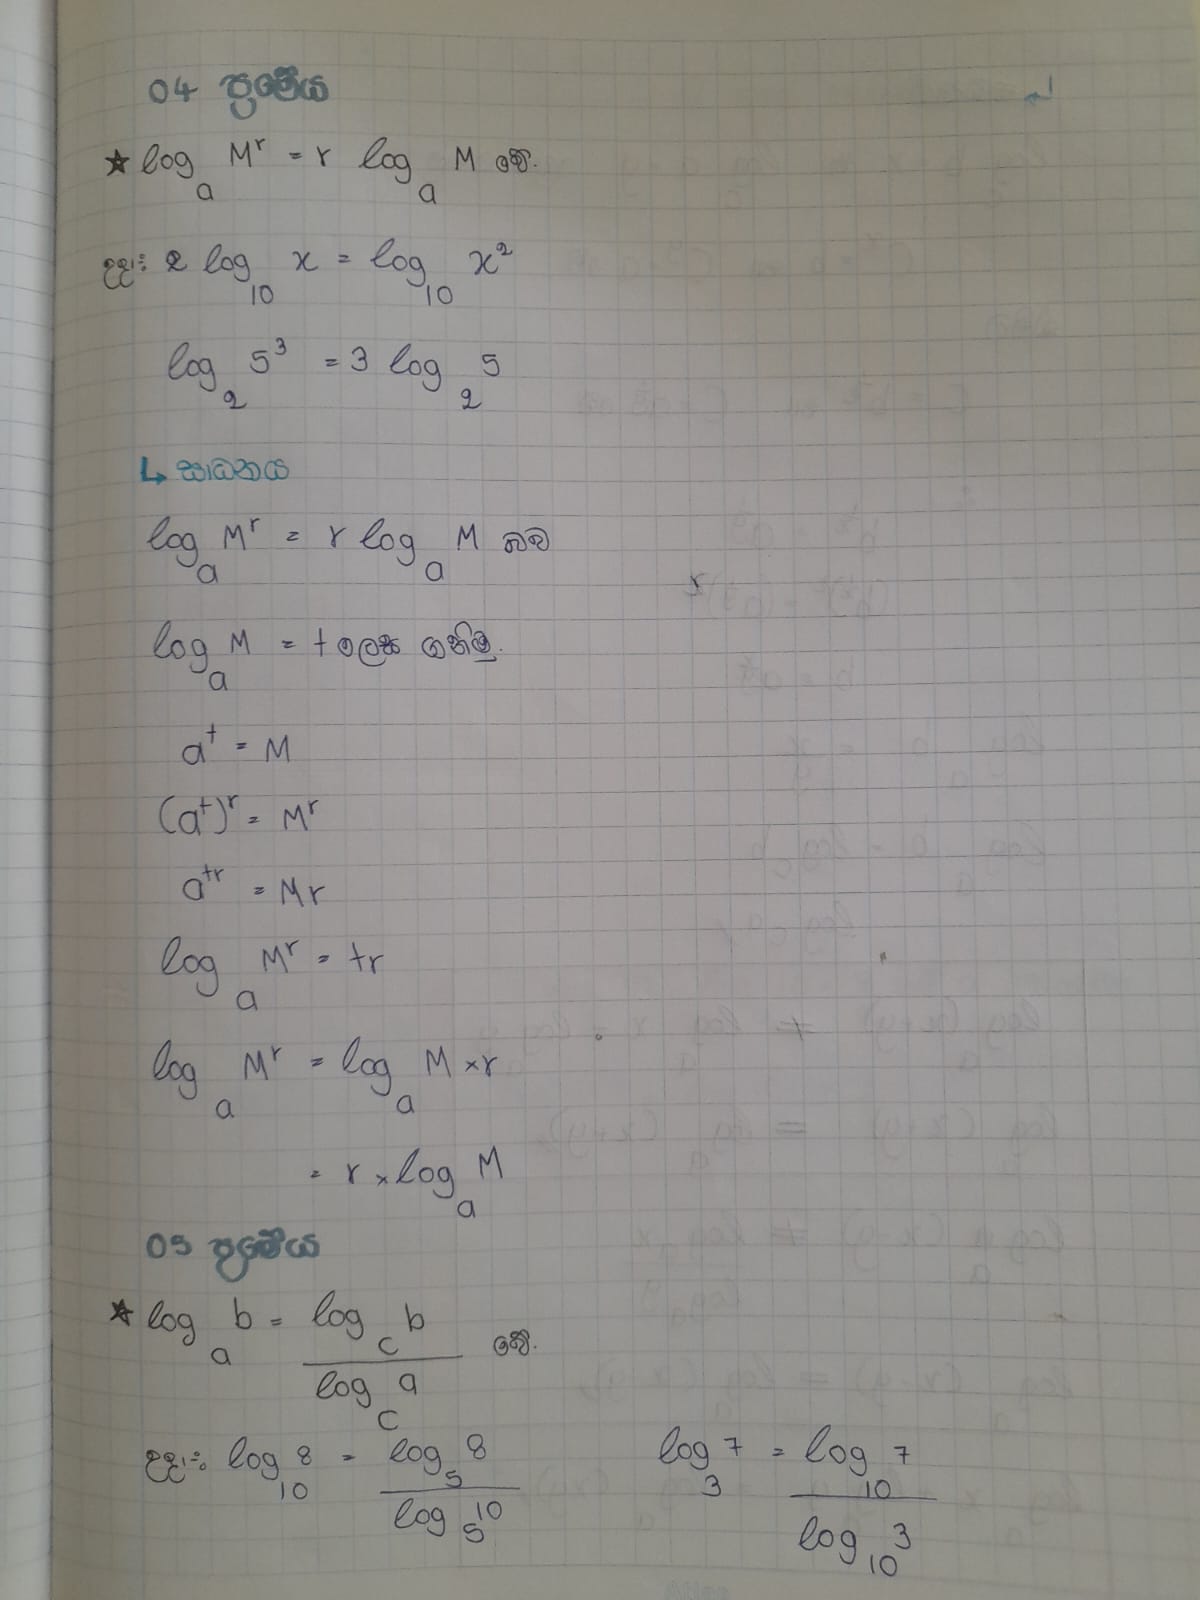 04 ප්‍රමේය
★ log_a M^r = r log_a M වේ.
උදා: 2 log_10 x = log_10 x^2
log_2 5^3 = 3 log_2 5
↳ සාධනය
log_a M^r = r log_a M බව
log_a M = t ලෙස ගනිමු.
a^t = M
(a^t)^r = M^r
a^tr = Mr
log_a M^r = tr
log_a M^r = log_a M × r
= r × log_a M
05 ප්‍රමේය
★ log_a b = log_c b / log_c a වේ.
උදා:- log_10 8 = log_5 8 / log_5 10 log_3 7 = log_10 7 / log_10 3